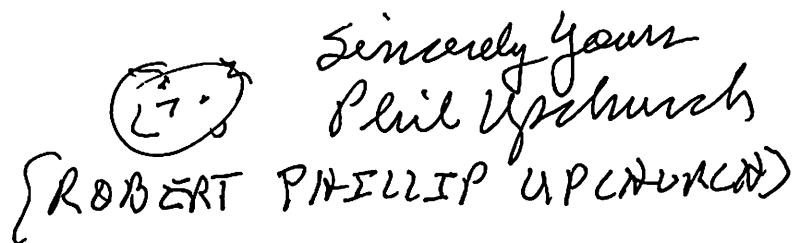 Sincerely Yours
Phil Upchurch
(ROBERT PHILLIP UPCHURCH)